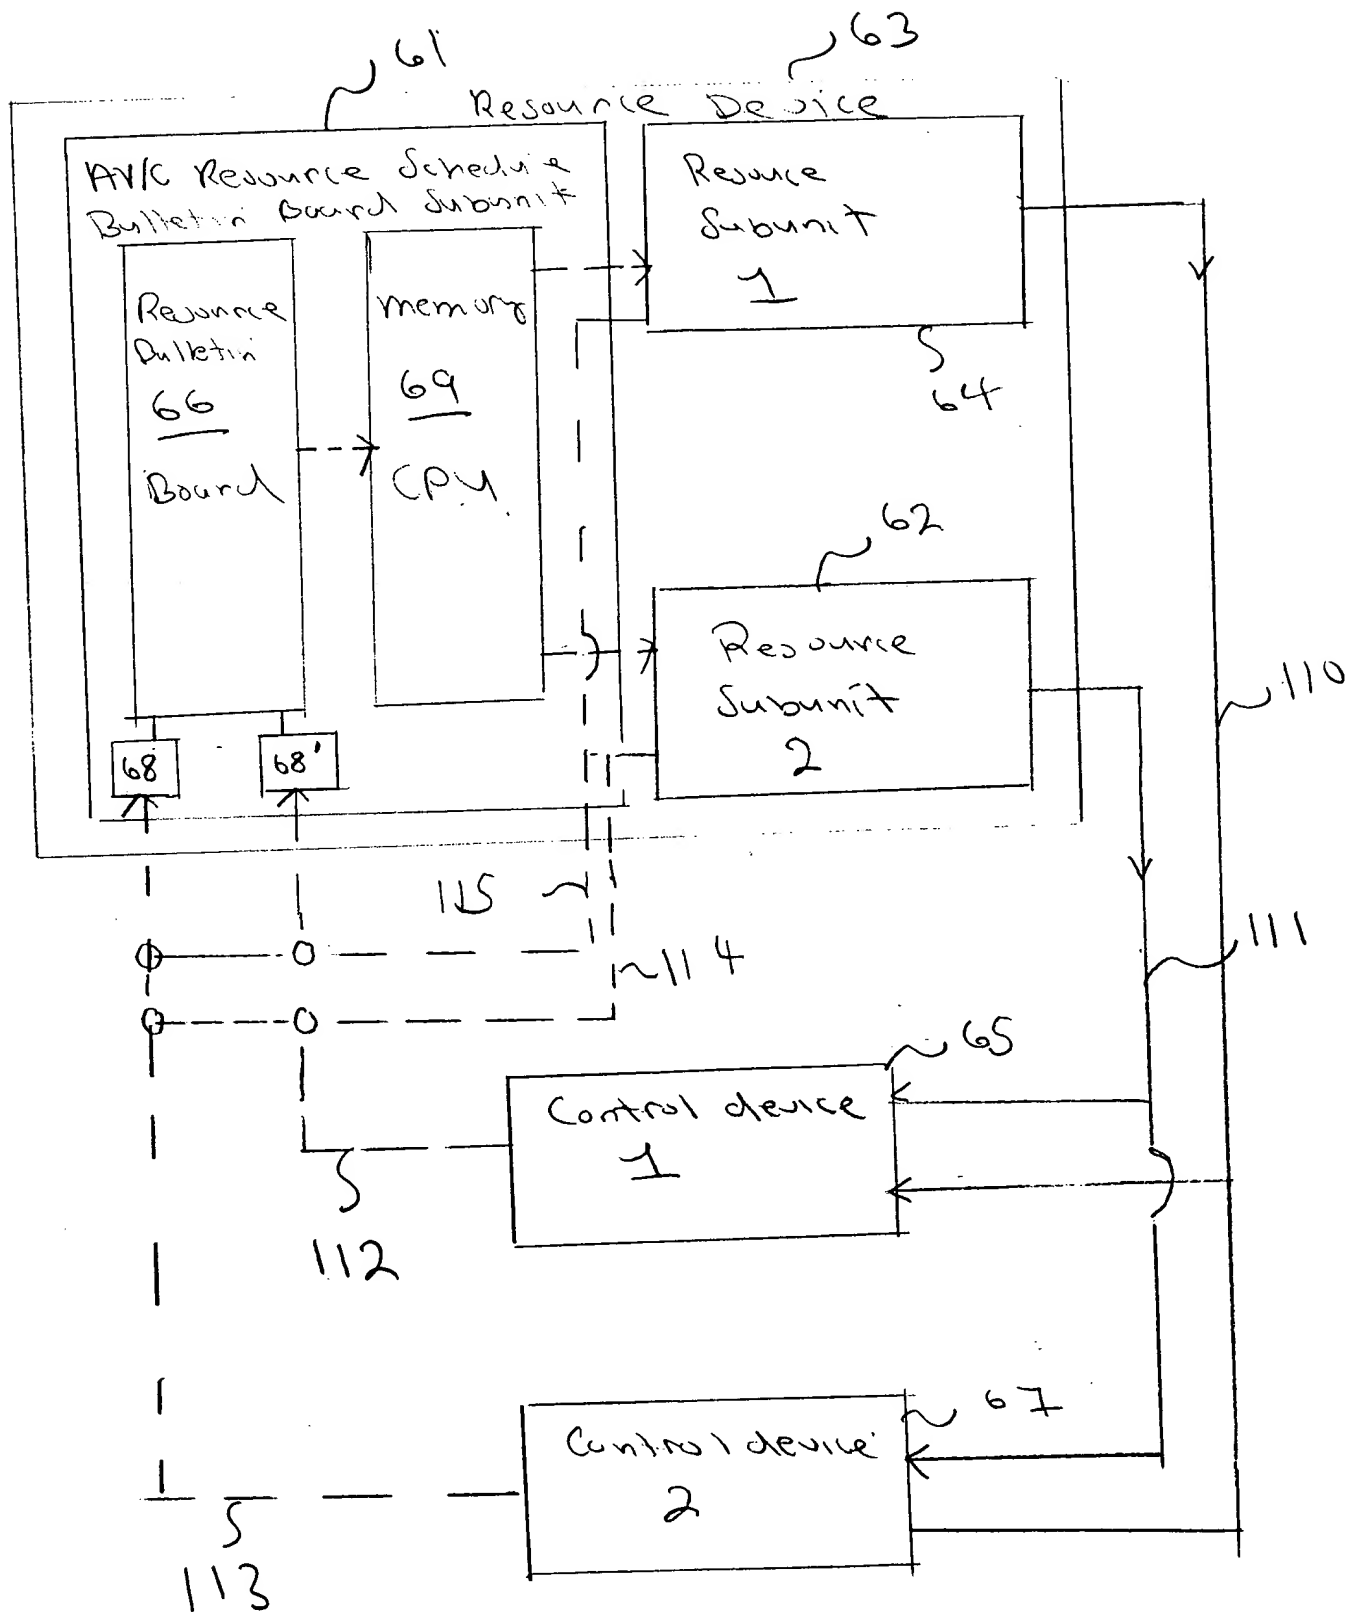 61
63
Resource Device
AV/C Resource Schedule
Bulletin Board Subunit
Resource
Subunit
1
64
Resource
Bulletin
66
Board
memory
69
CPU
62
Resource
Subunit
2
68
68'
110
115
114
111
65
Control device
1
112
67
Control device
2
113